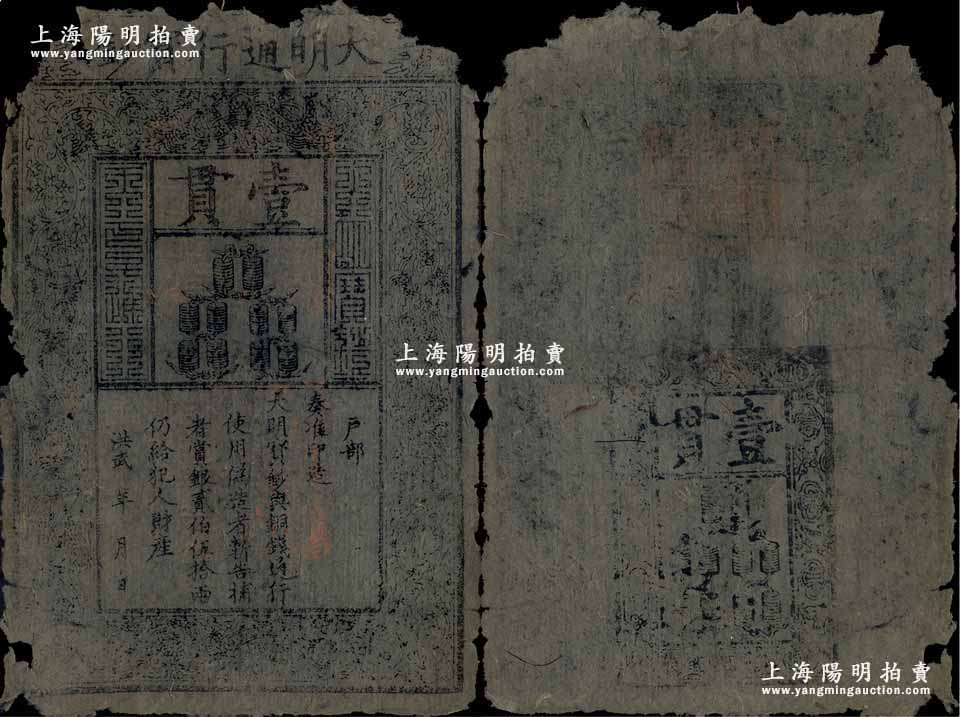 上海陽明拍賣
www.yangmingauction.com
大明通行寶鈔
壹貫
戶部
奏准印造
大明寶鈔與銅錢通行
使用偽造者斬告捕
者賞銀貳伯伍拾兩
仍給犯人財產
洪武 年 月 日
上海陽明拍賣
www.yangmingauction.com
壹貫
上海陽明拍賣
www.yangmingauction.com